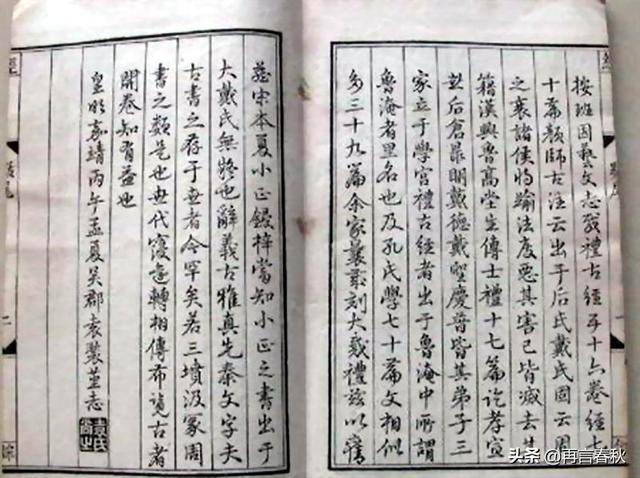 按班固藝文志載禮古經五十六卷經七
十篇顏師古注云出于后氏戴氏固云周
之衰諸侯將踰法度惡其害己皆滅去其
籍漢興魯高堂生傳士禮十七篇訖孝宣
世后倉最明戴德戴聖慶普皆其弟子三
家立于學官禮古經者出于魯淹中所謂
魯淹者里名也及孔氏學七十篇文相似
多三十九篇余家曩刻大戴禮茲以舊
宋本夏小正鋟梓當知小正之書出于
大戴氏無疑也辭義古雅真先秦文字夫
古書之存于世者今罕矣若三墳汲冢周
書之類是也世代寖遠轉相傳布覽古者
開卷知有益也
皇明嘉靖丙午孟夏吳郡袁褧謹志
袁氏尚之
头条 @再言春秋